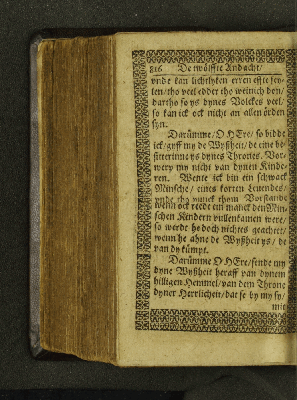 816 De twölffte Andacht/
vnde kan lichtlyken erren effte fey-
len/tho veel edder tho weinich don/
dartho so ys dynes Volckes veel/
so kan ick ock nicht an allen orden
syn.
Darümme/O HEre/so bidde
ick/gyff my de Wyßheit/de eine by-
sitterinne ys dynes Thrones. Vor-
werp my nicht van dynen Kinde-
ren. Wente ick bin ein schwack
Minsche/eines korten Leuendes/
vnde tho ringe
Wenn ock rede ein manck den Min-
schen Kindern vullenkamen were/
so werde he doch nichtes geachtet/
wenn he ahne de Wyßheit ys/de
van dy kümpt.
Darümme O HEre/sende my
dyne Wyßheit heraff van dynem
hilligen Hemmel/van dem Throne
dyner Herrlicheit/dat se by my sy/
mit